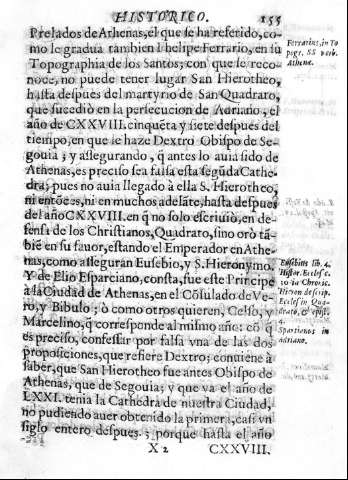 HISTORICO. 155
Prelados de Athenas, el que se ha referido, co-
mo le gradua tambien Fhelipe Ferrario, en su
Topographia de los Santos; con que se reco-
noce, no puede tener lugar San Hierotheo,
hasta despues del martyrio de San Quadrato,
que sucediò en la persecucion de Adriano, el
año de CXXVIII. cinquēta y siete despues del
tiempo, en que le haze Dextro Obispo de Se-
gouia; y assegurando, q̄ antes lo auia sido de
Athenas, es preciso sea falsa esta segūda Cathe-
dra; pues no auia llegado à ella S. Hierotheo,
ni entōces, ni en muchos adelāte, hasta despues
del año CXXVIII. en q̄ no solo escriuiò, en de-
fensa de los Christianos, Quadrato, sino orò tā-
biē en su fauor, estando el Emperador en Athe-
nas, como asseguran Eusebio, y S. Hieronymo.
Y de Elio Esparciano, consta, fue este Principe
à la Ciudad de Athenas, en el Cōsulado de Ve-
ro, y Bibulo; ò como otros quieren, Celso, y
Marcelino, q̄ corresponde al mismo año: cō q̄
es preciso, confessar por falsa vna de las dos
proposiciones, que refiere Dextro; conuiene à
saber, que San Hierotheo fue antes Obispo de
Athenas, que de Segouia; y que ya el año de
LXXI. tenia la Cathedra de nuestra Ciudad,
no pudiendo auer obtenido la primera, casi vn
siglo entero despues; porque hasta el año
X 2 CXXVIII.
Ferrarius, in To
pogr. SS verb.
Athene.
Eusebius lib. 4.
Histor. Ecclef c.
30 in Chronic.
Hieron de scrip.
Eccles in Qua-
drato, & epist.
Spartianus in
Adriano.